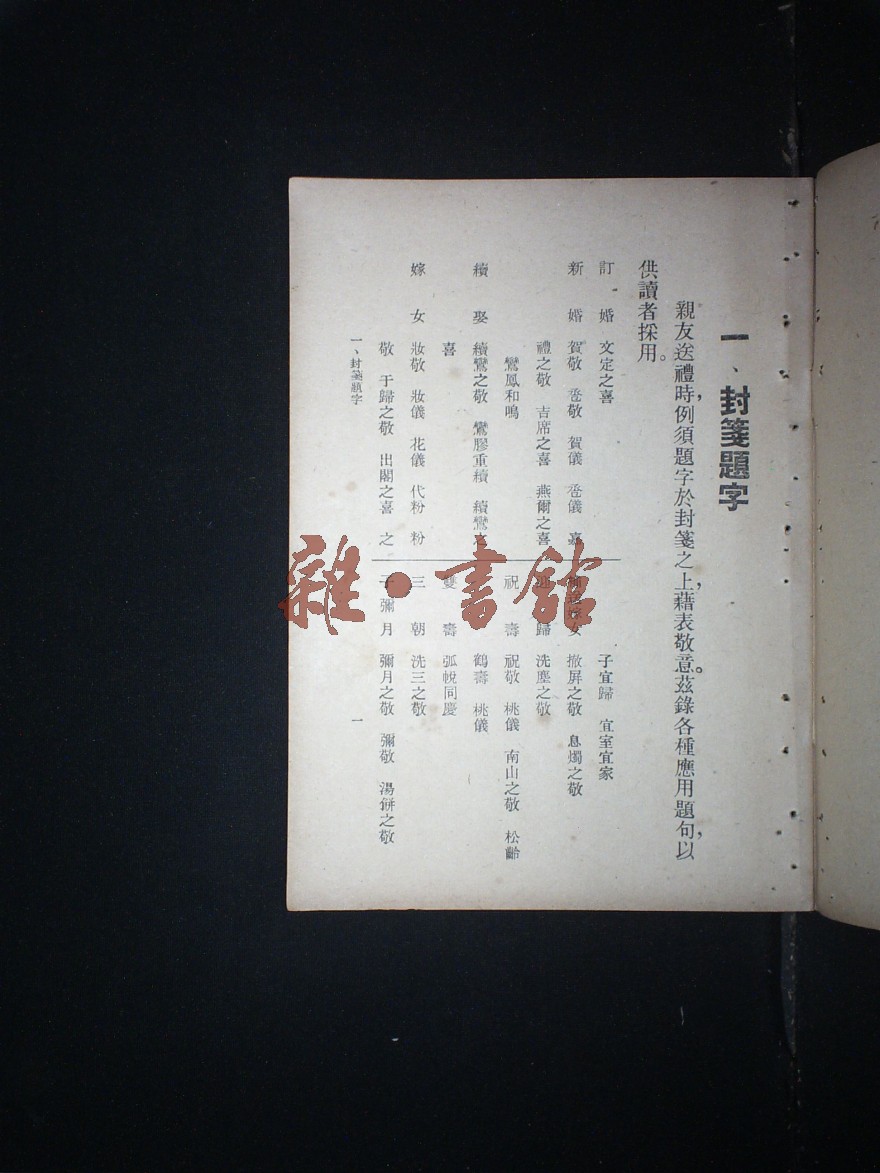 一、封箋題字
親友送禮時，例須題字於封箋之上，藉表敬意。茲錄各種應用題句，以
供讀者採用。
訂婚 文定之喜
新婚 賀敬 卺敬 賀儀 卺儀 嘉
禮之敬 吉席之喜 燕爾之喜
鸞鳳和鳴
續娶 續鸞之敬 鸞膠重續 續鸞之
喜
嫁女 妝敬 妝儀 花儀 代粉 粉
敬 于歸之敬 出閣之喜 之
子宜歸 宜室宜家
嫁女 撤屏之敬 息燭之敬
歸 洗塵之敬
祝壽 祝敬 桃儀 南山之敬 松齡
鶴壽 桃儀
雙壽 弧帨同慶
三朝 洗三之敬
子彌月 彌月之敬 彌敬 湯餅之敬
一、封箋題字
一
雜·書館